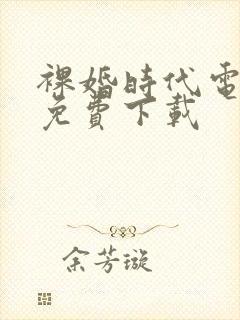 裸婚時代電
免費下載
余芳璇